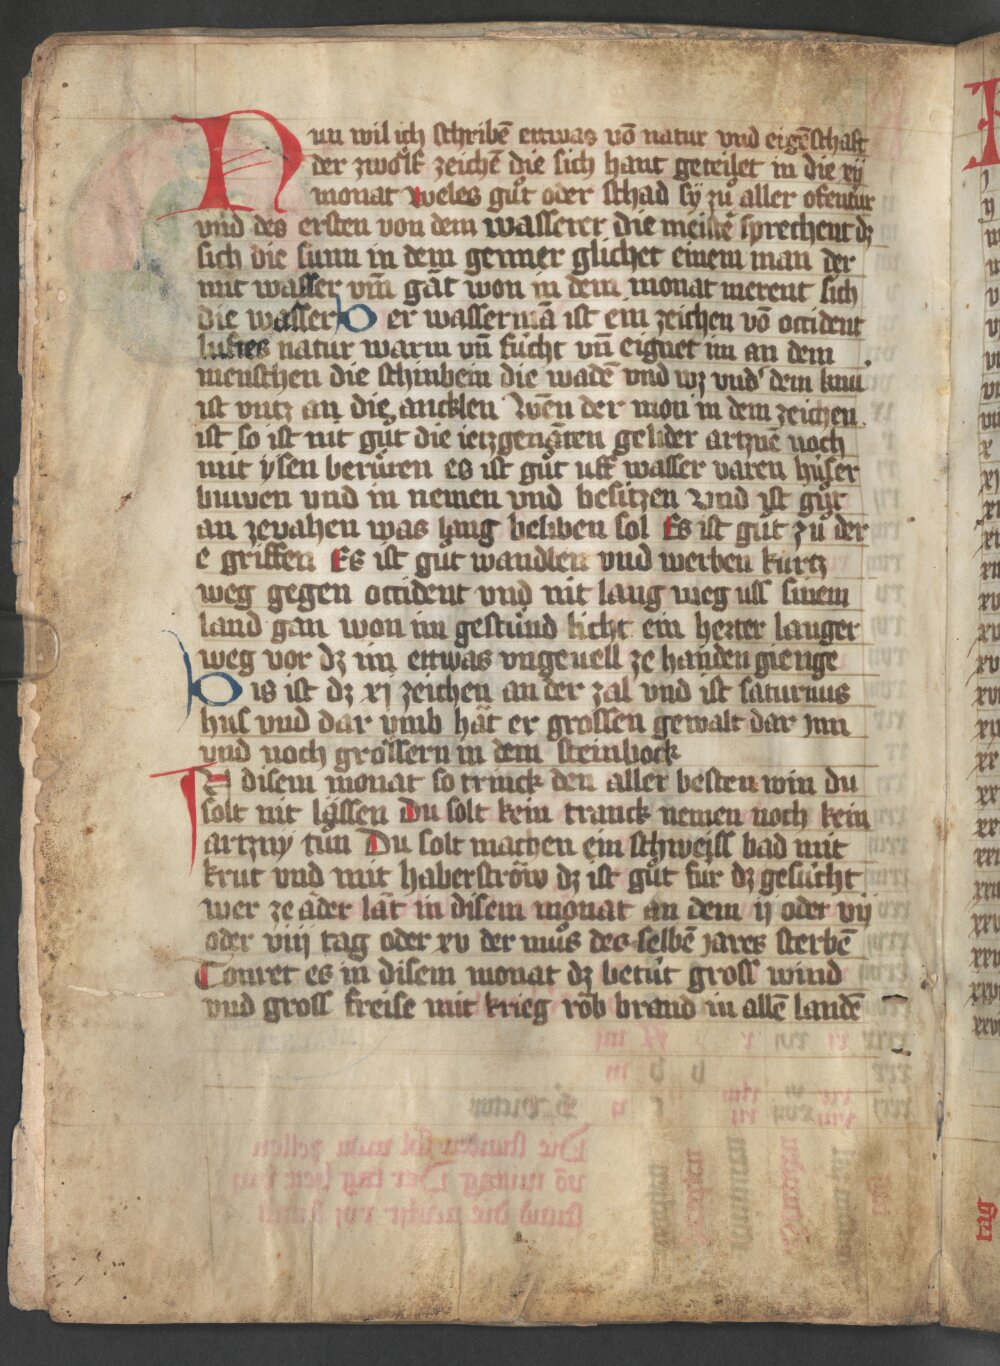 Nun wil ich schribē ettwas vō natur vnd eigēschaft
der zwölf zeichē die sich hant geteilet in die xij
monat weles gůt oder schad sÿ zů aller ofentür
vnd des ersten von dem wasserer die meistē sprechent dz
sich die sunn in dem genner glichet einem man der
mit wasser vm̄ gāt won in dem monat merent sich
die wasser Der wassermā ist ein zeichen vō occident
luftes natur warm vn̄ fücht vn̄ eignet im an dem
menschen die schinbein die wadē vnd wz vnd' dem knü
ist vntz an die ancklen Wēn der mon in dem zeichen
ist so ist nit gůt die ietzgenāten gelider artznē noch
mit ysen berüren es ist gůt uff wasser varen hüser
buwen vnd in nemen vnd besitzen Vnd ist gůt
an zevahen was lang beliben sol Es ist gůt zů der
e griffen Es ist gůt wandlen vnd werben kurtz
weg gegen occident vnd nit lang weg uss sinem
land gan won im gestůnd licht ein herter langer
weg vor dz im ettwas vngeuell ze handen gienge
Dis ist dz xj zeichen an der zal vnd ist saturnus
hus vnd dar vmb hāt er grossen gewalt dar jnn
vnd noch grössern in dem steinbock
In disem monat so trinck den aller besten win du
solt nit lässen Du solt kein tranck nemen noch kein
artzny tůn Du solt machen ein schweiss bad mit
krut vnd mit haberströw dz ist gůt für dz gesücht
wer ze āder lāt in disem monat an dem ij oder vij
oder viij tag oder xv der můs des selbē jares sterbē
Tonret es in disem monat dz betüt gross wind
vnd gross freise mit krieg rōb brand in allē landē
tag